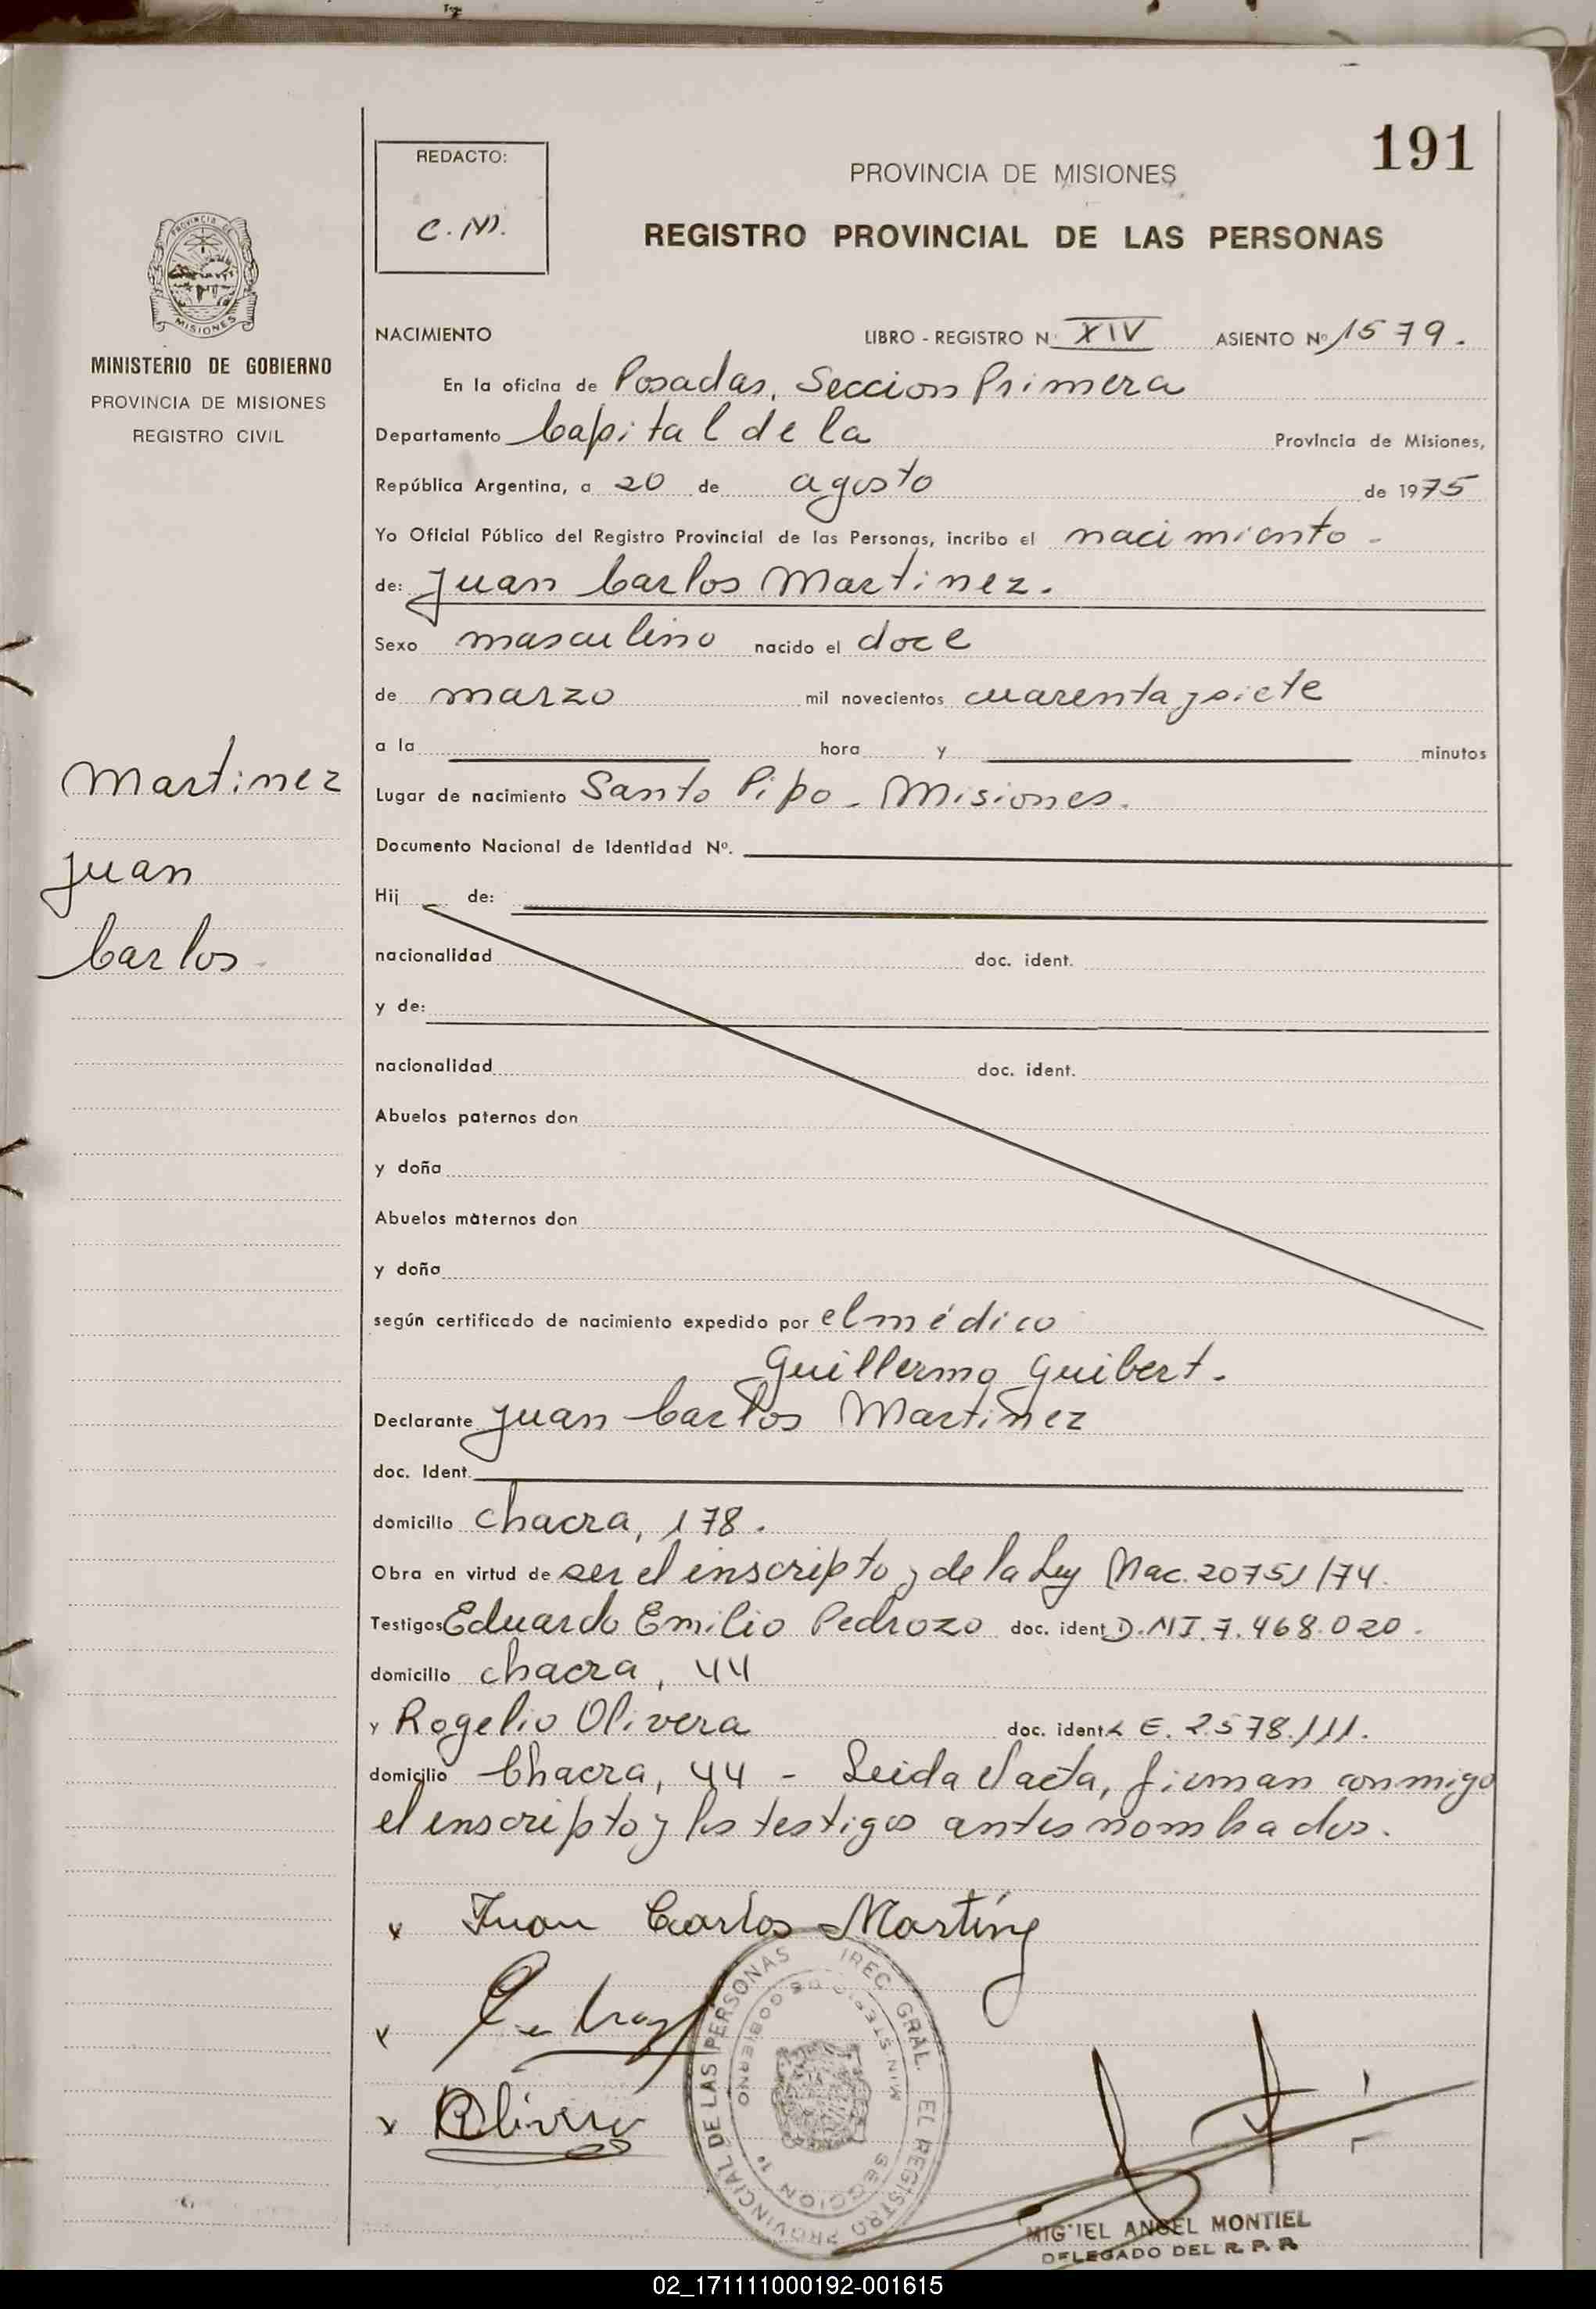 191
REDACTO:
C. M.
PROVINCIA DE MISIONES
REGISTRO PROVINCIAL DE LAS PERSONAS
PROVINCIA DE
MISIONES
MINISTERIO DE GOBIERNO
PROVINCIA DE MISIONES
REGISTRO CIVIL
NACIMIENTO LIBRO - REGISTRO N. XIV ASIENTO Nº 1579.
En la oficina de Posadas, Seccion Primera
Departamento Capital de la Provincia de Misiones,
República Argentina, a 20 de agosto de 1975
Yo Oficial Público del Registro Provincial de las Personas, incribo el nacimiento -
de: Juan Carlos Martinez.
Sexo masculino nacido el doce
de marzo mil novecientos cuarenta y siete
a la hora y minutos
Martinez
Juan
Carlos
Lugar de nacimiento Santo Pipo - Misiones.
Documento Nacional de Identidad Nº.
Hij de:
nacionalidad doc. ident.
y de:
nacionalidad doc. ident.
Abuelos paternos don
y doña
Abuelos maternos don
y doña
según certificado de nacimiento expedido por el médico
Guillermo Guibert.
Declarante Juan Carlos Martinez
doc. Ident.
domicilio chacra, 178.
Obra en virtud de ser el inscripto y de la Ley Nac. 20751/74.
Testigos Eduardo Emilio Pedrozo doc. ident D.NI. 7.468.020.
domicilio chacra, 44
y Rogelio Olivera doc. ident L E. 2.578.111.
domicilio Chacra, 44 - Leida el acta, firman conmigo
el inscripto y los testigos antes nombados.
x Juan Carlos Martinez
x
x Olivera
DIREC. GRAL. EL REGISTRO PROVINCIAL DE LAS PERSONAS
MINISTERIO DE GOBIERNO
SECCION 1º
MIGUEL ANGEL MONTIEL
DELEGADO DEL R. P. P.
02_171111000192-001615